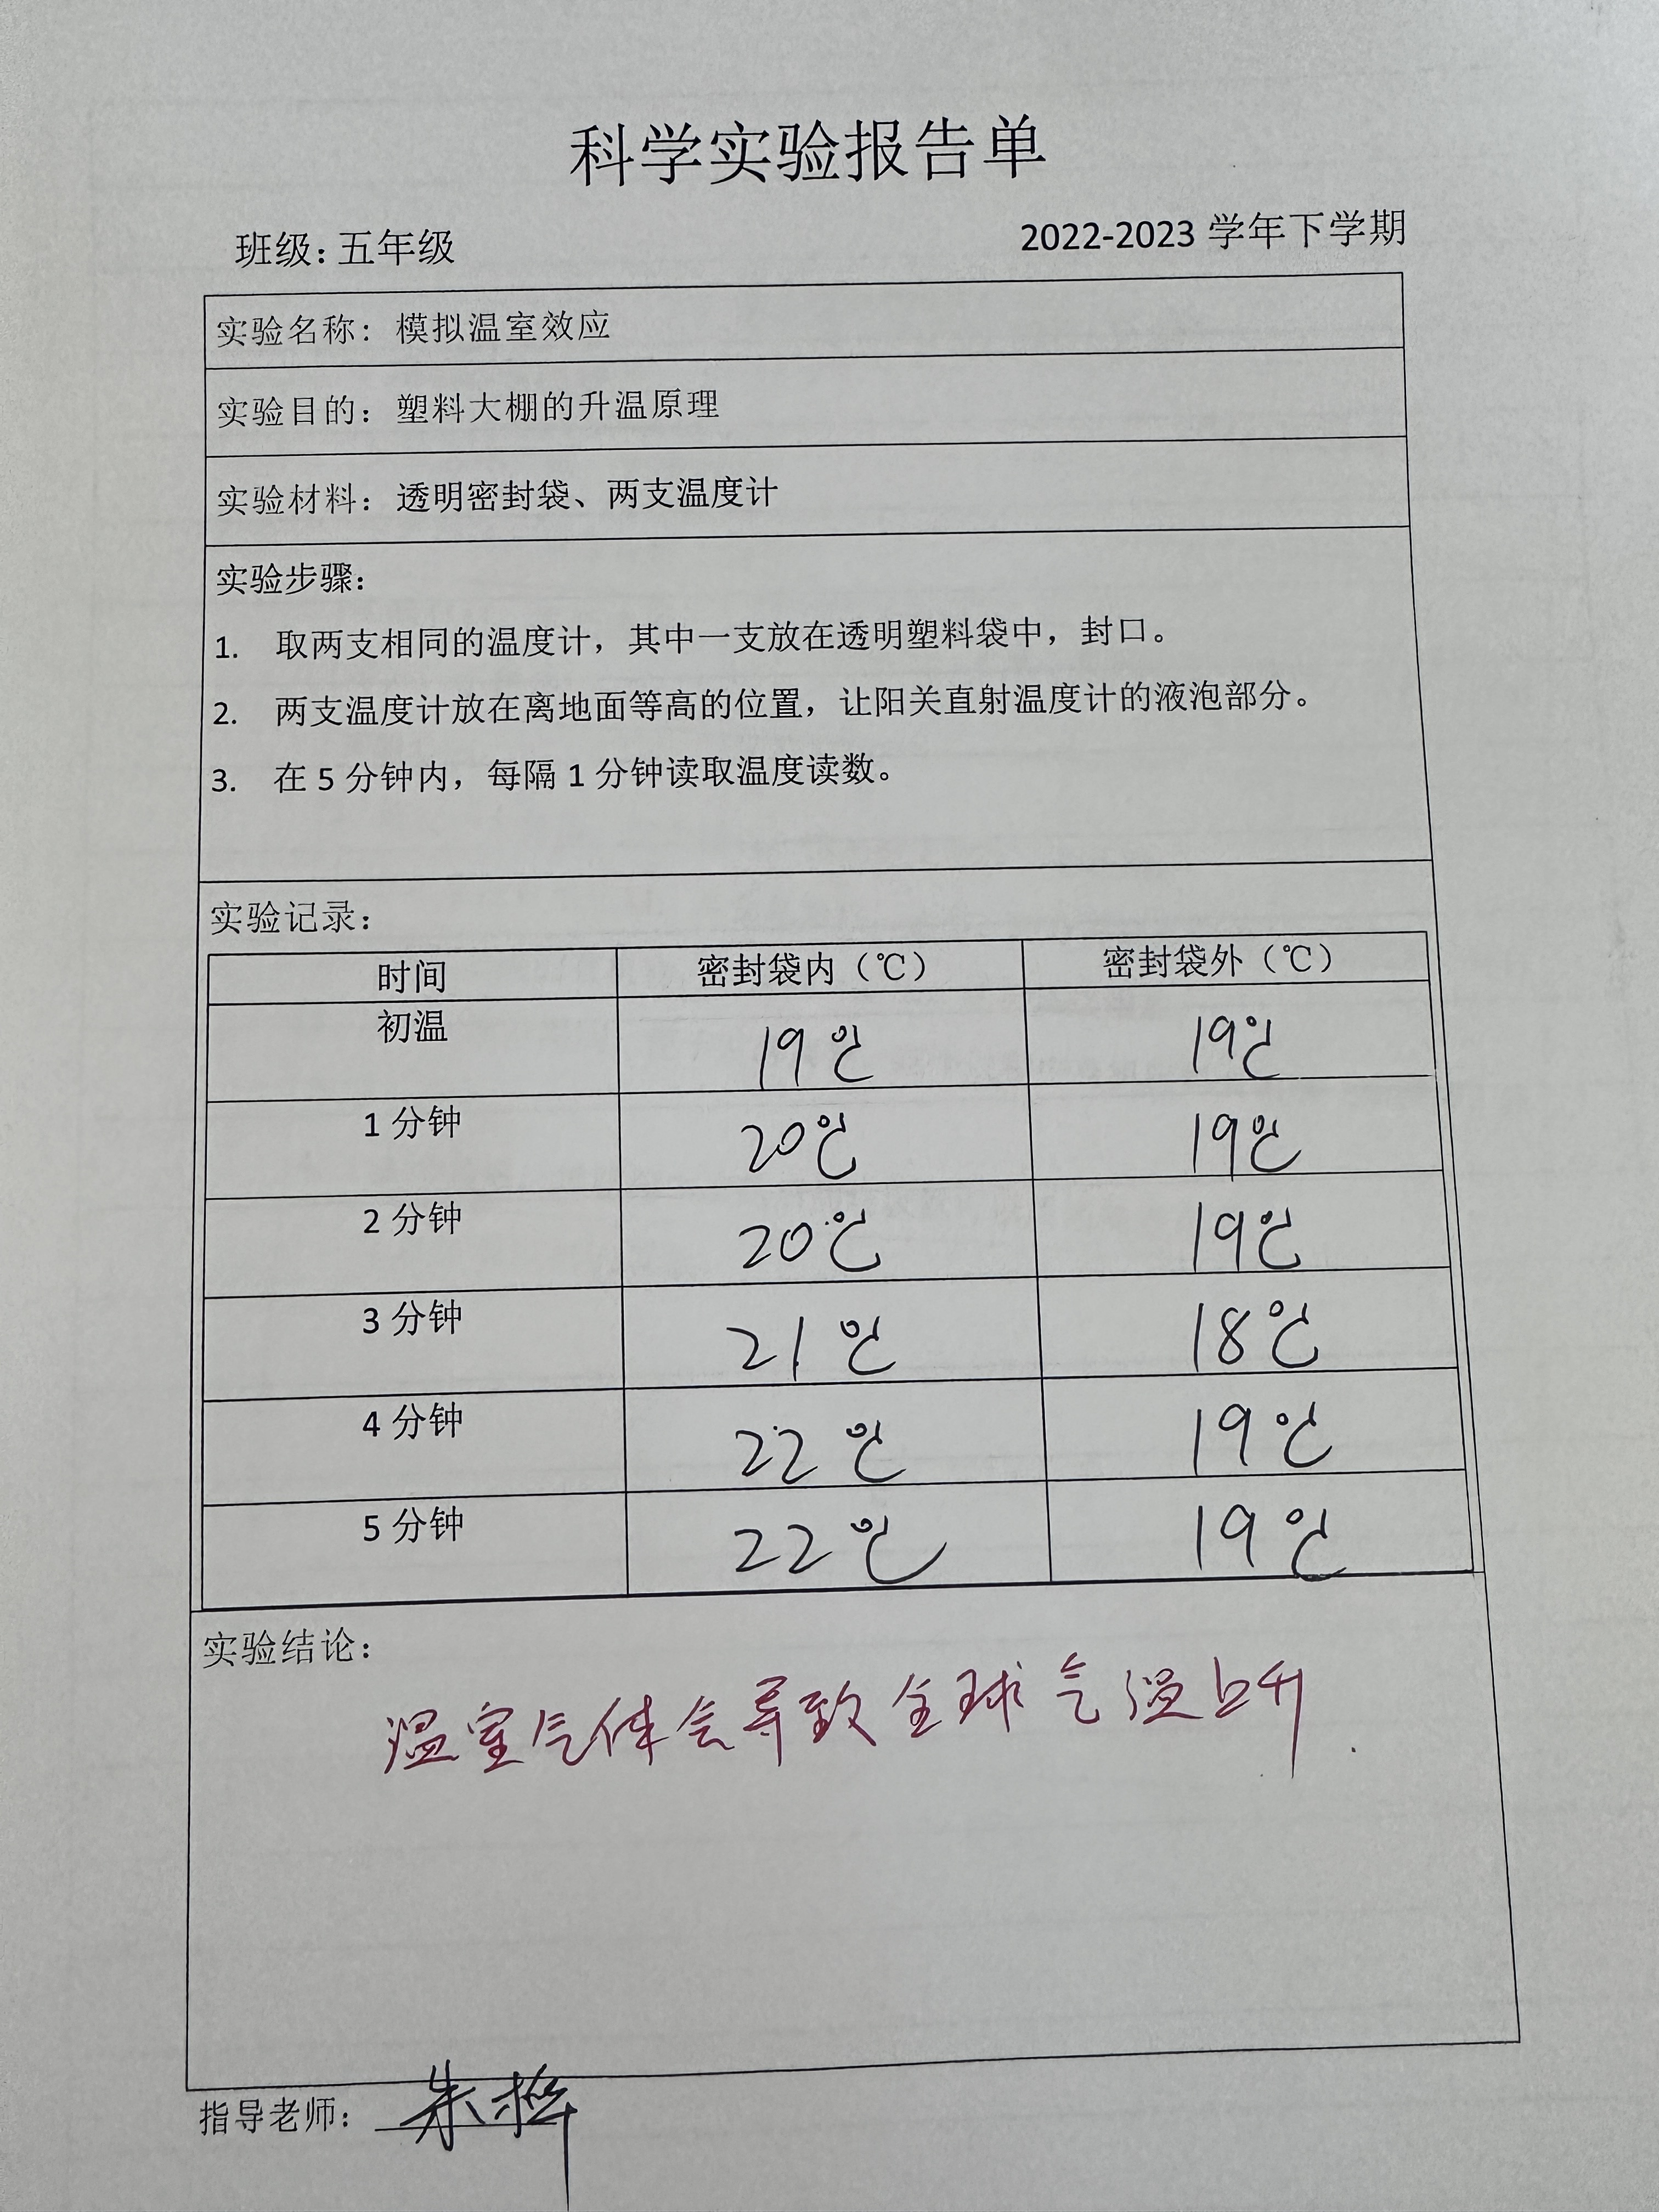 科学实验报告单
班级：五年级 2022-2023 学年下学期
实验名称：模拟温室效应
实验目的：塑料大棚的升温原理
实验材料：透明密封袋、两支温度计
实验步骤：
1. 取两支相同的温度计，其中一支放在透明塑料袋中，封口。
2. 两支温度计放在离地面等高的位置，让阳关直射温度计的液泡部分。
3. 在 5 分钟内，每隔 1 分钟读取温度读数。
实验记录：
时间 密封袋内（℃） 密封袋外（℃）
初温 19℃ 19℃
1 分钟 20℃ 19℃
2 分钟 20℃ 19℃
3 分钟 21℃ 18℃
4 分钟 22℃ 19℃
5 分钟 22℃ 19℃
实验结论：
温室气体会导致全球气温上升.
指导老师：朱